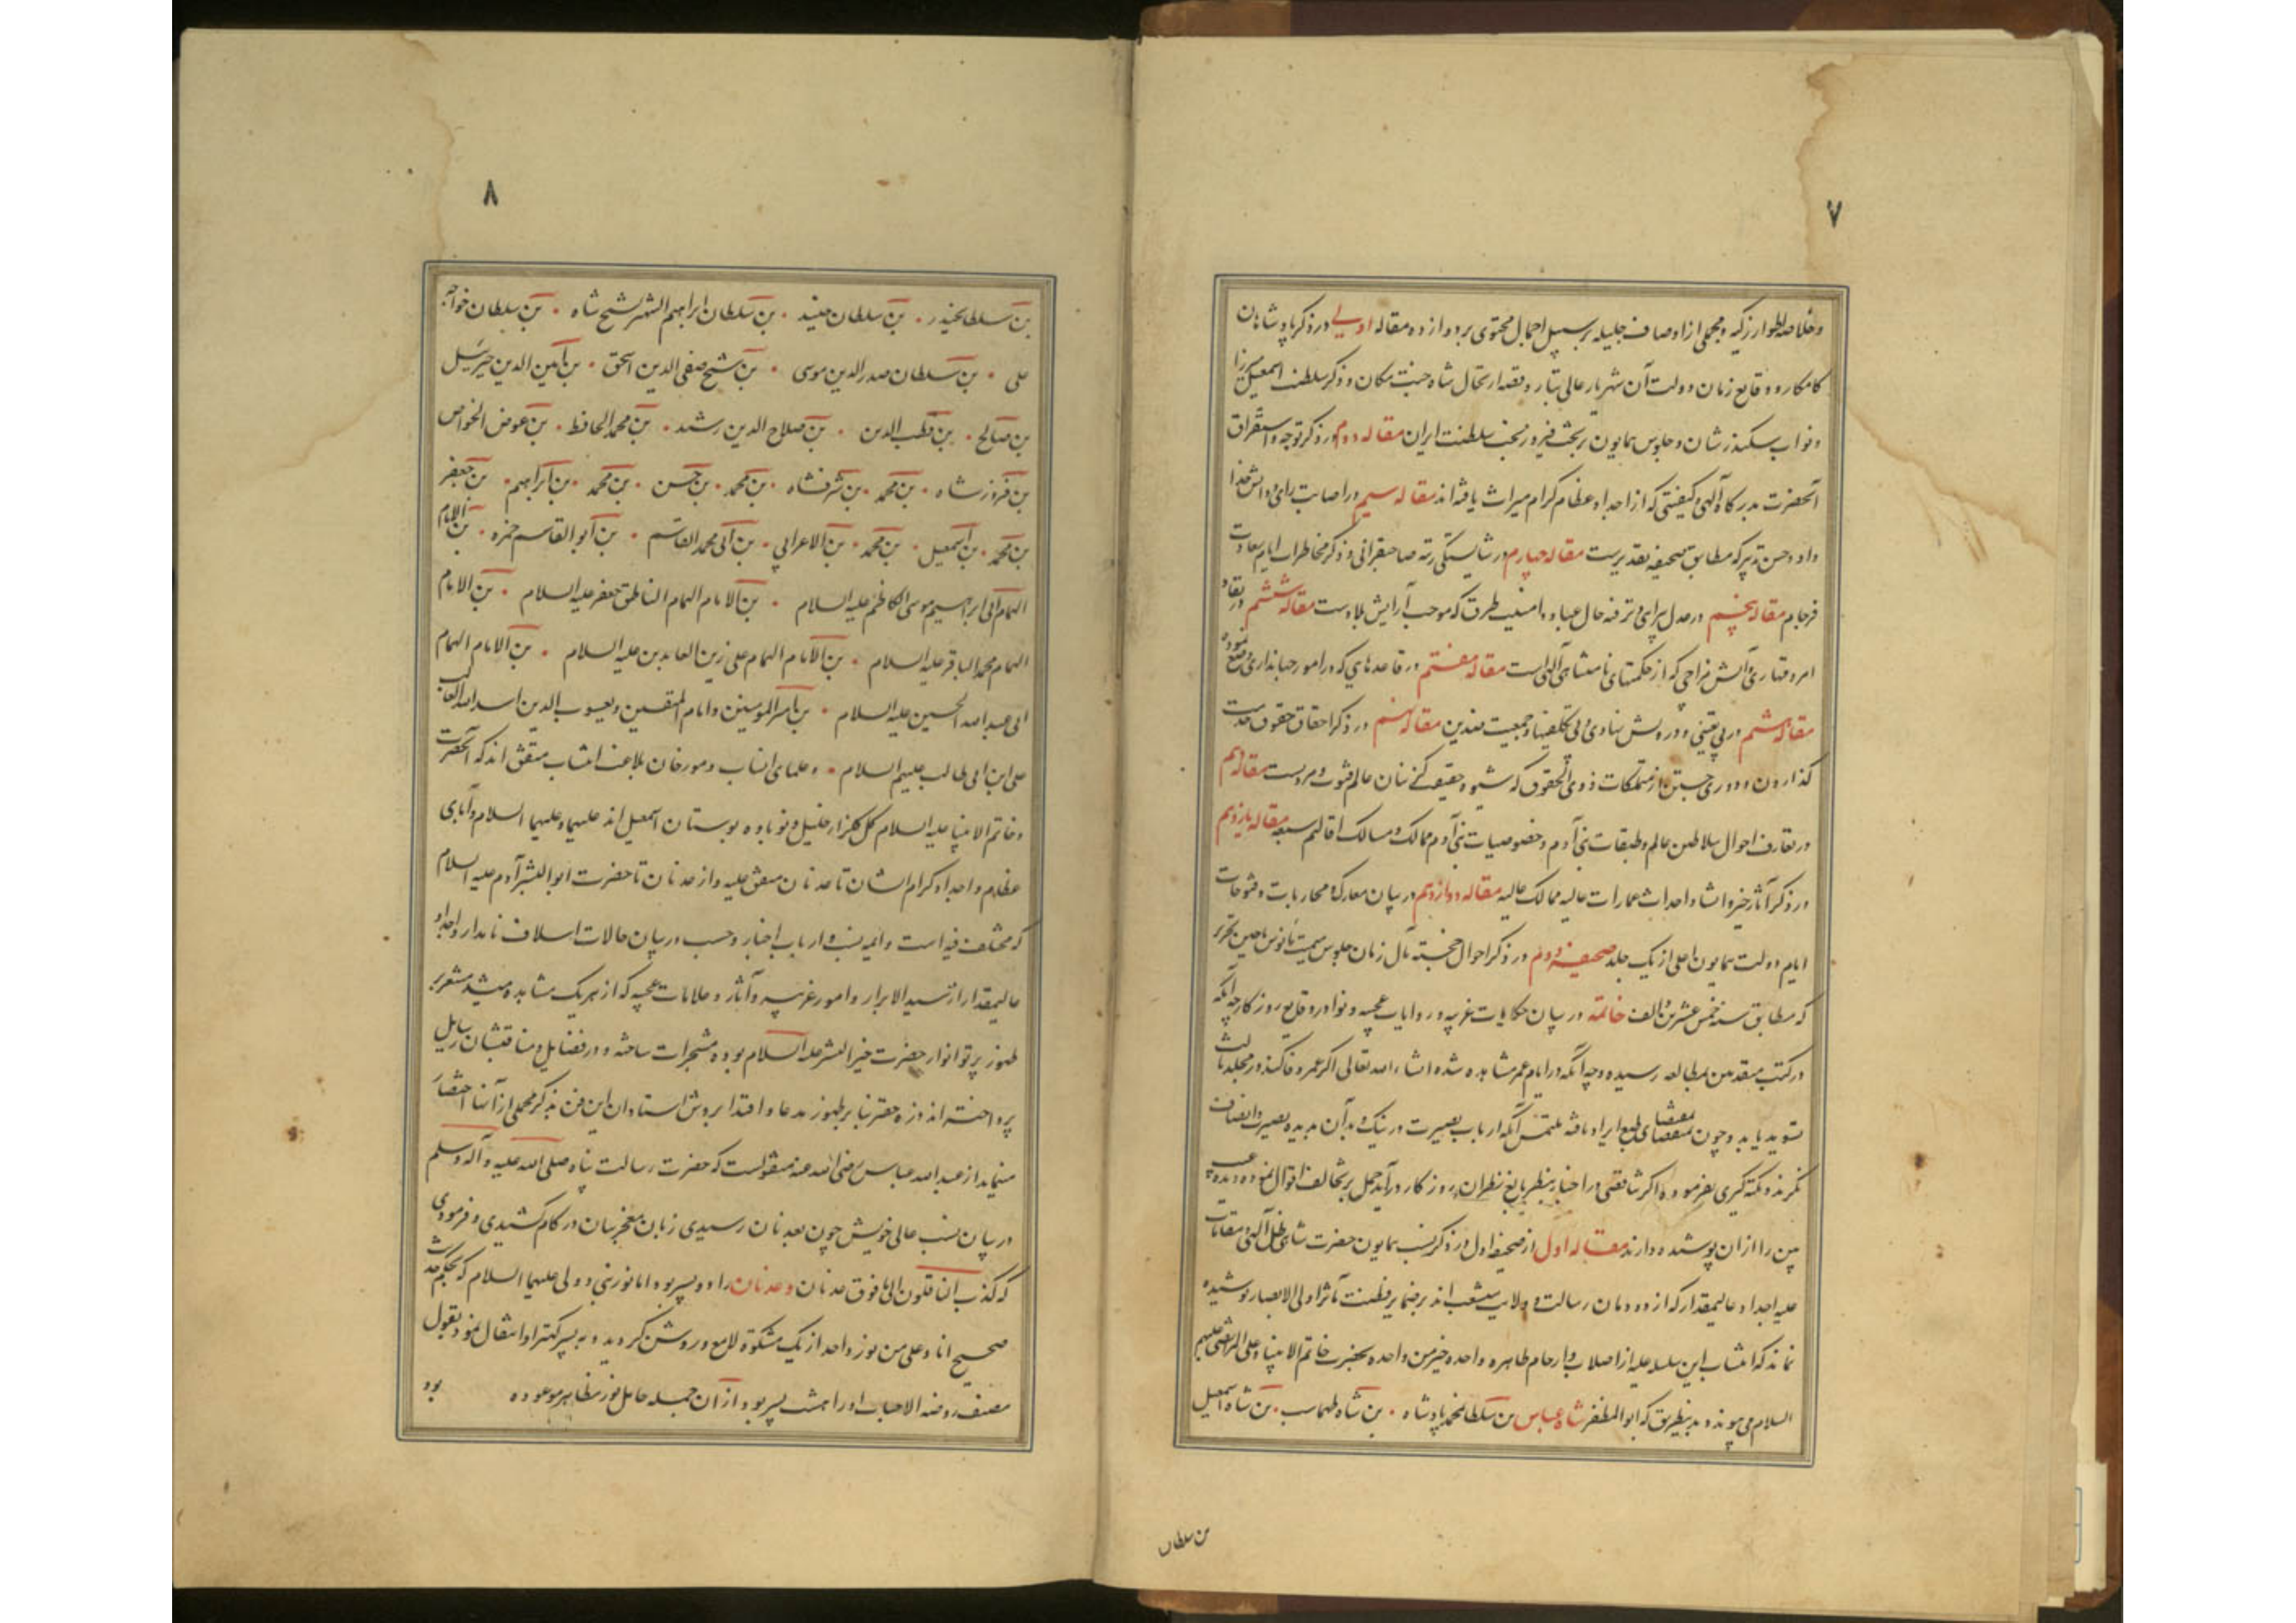 ۷
وخلاصه اطوار زکیه ومجملی از اوصاف جلیله بر سبیل اجمال محتوی بر دوازده مقاله اولی در ذکر پادشاهان
کامکار ووقایع زمان دولت آن شهریار عالی تبار وقصه ارتحال شاه جنت مکان وذکر سلطنت اسمعیل میرزا
ونواب سکندرشان وجلوس همایون بر تخت فیروزبخت سلطنت ایران مقاله دوم در ذکر توجه واستغراق
آنحضرت بدرگاه آلهی وکیفیتی که از اجداد عظام کرام میراث یافته‌اند مقاله سیم در اصابت رای ودانش خدا
داد وحسن تدبیر که مطابق صحیفه تقدیر است مقاله چهارم در شایستگی رتبه صاحبقرانی وذکر مخاطرات ایام سعادت
فرجام مقاله پنجم در عدل پرایی وترفه حال عباد وامنیت طرق که موجب آرایش بلاد است مقاله ششم در نفاذ
امر وقهاری وآتش مزاجی که از حکمتهای نامتناهی آلهی است مقاله هفتم در قاعدهایی که در امور جهانداری وضع نموده
مقاله هشتم در بی تعینی ودرویش نهادی وبی تکلفیها وجمعیت ضدین مقاله نهم در ذکر احقاق حقوق خدمت
گذاران ودوری جستن از متملکات ذوی الحقوق که شیوه حقیقت کیشان عالم فتوت ومردیست مقاله دهم
در تعارف احوال سلاطین عالم وطبقات بنی آدم وخصوصیات بنی آدم ممالک ومسالک اقالیم سبعه مقاله یازدهم
در ذکر آثار خیر وانشا واحداث عمارات عالیه ممالک عالیه مقاله دوازدهم در بیان معارک ومحاربات وفتوحات
ایام دولت همایون اعلی از یک جلد صحیفه دوم در ذکر احوال خجسته مآل زمان جلوس میمنت مأنوس تا حین تحریر
که مطابق سنه خمس عشرین والف خاتمه در بیان حکایات غریبه وروایات عجیبه ونوادر وقایع روزگار چه آنکه
در کتب متقدمین بمطالعه رسیده وچه آنکه در ایام عمر مشاهده شده انشاء الله تعالی اگر عمر وفا کند در مجلد ثالث
تسوید یابد وچون بمقتضای طبع ایراد یافته ملتمس آنکه ارباب بصیرت در نیک وبد آن بدیده بصیرت وانصاف
نگرند ونکته گیری نفرموده اگر تناقضی در اخبار بنظر بالغ نظران روزگار درآید حمل بر تخالف اقوال نموده دیده عیب
بین را از آن پوشیده دارند مقاله اول از صحیفه اول در ذکر نسب همایون حضرت شاهی ظل آلهی ومقامات
علیه اجداد عالیمقدار که از دودمان رسالت وولایت منشعب‌اند بر ضمایر فطنت مآثر اولی الابصار پوشیده
نماند که انتساب این سلسله علیه از اصلاب وارحام طاهره واحده خیر من واحده بحضرت خاتم الانبیا وعلی المرتضی علیهم
السلام می پیوندد بدینطریق که ابوالمظفر شاه عباس بن سلطان محمد پادشاه بن شاه طهماسب بن شاه اسمعیل
بن سلطان
۸
بن سلطان حیدر بن سلطان جنید بن سلطان ابراهیم المشتهر بشیخ شاه بن سلطان خواجه
علی بن سلطان صدر الدین موسی بن شیخ صفی الدین اسحق بن امین الدین جبرئیل
بن صالح بن قطب الدین بن صلاح الدین رشید بن محمد الحافظ بن عوض الخواص
بن فیروز شاه بن محمد بن شرفشاه بن محمد بن حسن بن محمد بن ابراهیم بن جعفر
بن محمد بن اسمعیل بن محمد بن الاعرابی بن ابی محمد القاسم بن ابو القاسم حمزه بن الامام
الهمام ابی ابراهیم موسی الکاظم علیه السلام بن الامام الهمام الناطق جعفر علیه السلام بن الامام
الهمام محمد الباقر علیه السلام بن الامام الهمام علی زین العابدین علیه السلام بن الامام الهمام
ابی عبد الله الحسین علیه السلام بن امیر المومنین وامام المتقین ویعسوب الدین اسد الله الغالب
علی ابن ابی طالب علیهم السلام وعلمای انساب ومورخان بلاغت انتساب متفق اند که آنحضرت
وخاتم الانبیا علیه السلام گل گلزار خلیل ونوباوه بوستان اسمعیل اند علیهما وعلیهما السلام وآبای
عظام واجداد کرام ایشان تا عدنان متفق علیه واز عدنان تا حضرت ابو البشر آدم علیه السلام
که مختلف فیه است وایمه نسب وارباب اخبار وحسب در بیان حالات اسلاف نامدار واجداد
عالیمقدار از سید الابرار وامور غریبه وآثار وعلامات عجیبه که از هر یک مشاهده میشد مشعر بر
ظهور پرتو انوار حضرت خیر البشر علیه السلام بوده مشجرات ساخته ودر فضایل ومناقبشان رسایل
پرداخته‌اند وذره حقیر بنا بر ظهور مدعا واقتدا بروش استادان این فن بذکر مجملی از آنها اختصار
مینماید از عبد الله عباس رضی الله عنه منقولست که حضرت رسالت پناه صلی الله علیه وآله وسلم
در بیان نسب عالی خویش چون بعدنان رسیدی زبان معجز بیان در کام کشیدی وفرمودی
که کذب الناقلون الی ما فوق عدنان وعدنان را دو پسر بود اما نور نبی وولی علیهما السلام که بحکم حدیث
صحیح انا وعلی من نور واحد از یک مشکوة لامع وروشن گردید وبه پسر کهتر او انتقال نمود بقول
مصنف روضه الاحباب او را هشت پسر بود از آن جمله حامل نور مظاهر موعوده بود